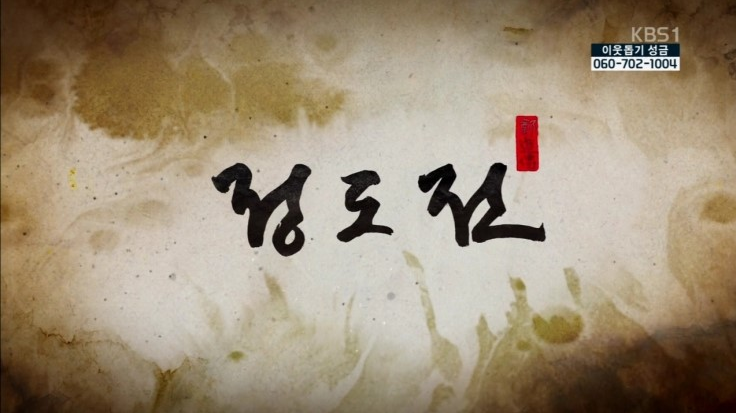 KBS1
이웃돕기 성금
060-702-1004
정도전